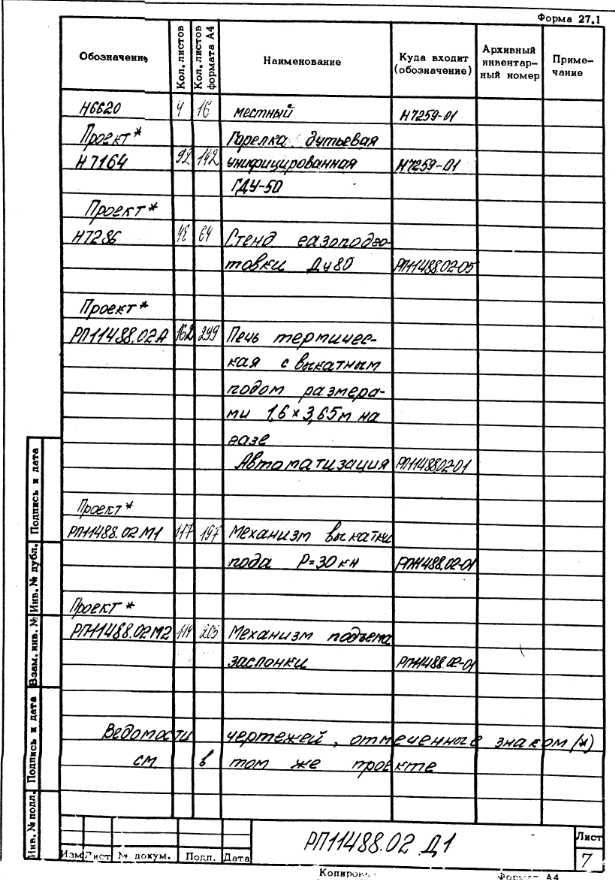 Форма 27.1
Обозначение Кол. листов Кол. листов формата А4 Наименование Куда входит (обозначение) Архивный инвентар- ный номер Приме- чание
Н6620 4 16 местный Н7259-01
Проект* Горелка дутьевая
Н7164 92 142 унифицированная Н7259-01
ГДУ-50
Проект*
Н7286 48 64 Стенд газоподго-
товки Ду80 РП11488.02-05
Проект*
РП11488.02А 162 299 Печь термичес-
кая с выкатным
подом размера-
ми 1,6 × 3,65м на
газе
Автоматизация РП11488.02-01
Проект*
РП11488.02М1 117 197 Механизм выкатки
пода Р=30 кн РП11488.02-01
Проект*
РП11488.02М2 114 Механизм подъема
заслонки РП11488.02-01
Ведомости чертежей, отмеченные знаком (*)
см. в том же проекте
Инв. № подл. Подпись и дата Взам. инв. № Инв. № дубл. Подпись и дата
Изм Лист № докум. Подп. Дата
РП11488.02 Д1
Лист
7
Копировал
Формат А4